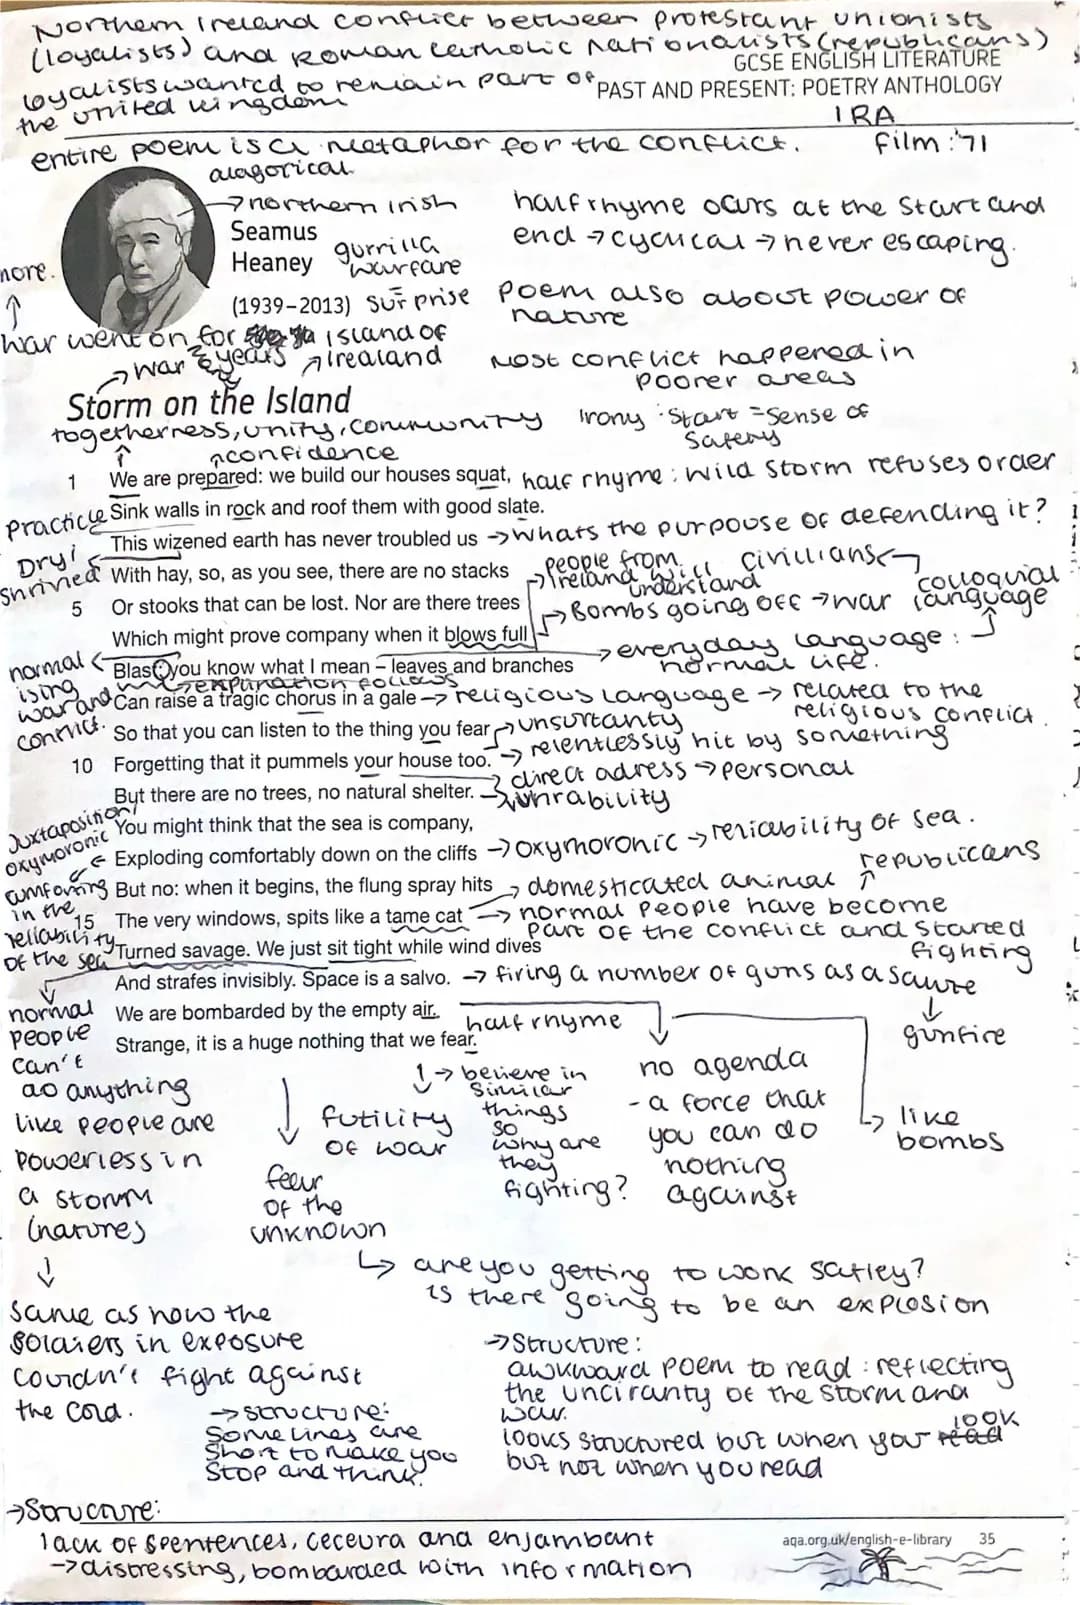 Northern Ireland conflict between protestant unionists
(loyalists) and Roman catholic nationalists (republicans)
loyalists wanted to remain part of
the united kingdom
GCSE ENGLISH LITERATURE
PAST AND PRESENT: POETRY ANTHOLOGY
IRA
film : '71
entire poem is a metaphor for the conflict.
alagorical
→ northern irish
Seamus
Heaney
(1939–2013)
gurrilla
warfare
surprise
half rhyme ocurs at the start and
end → cyclical → never escaping.
poem also about power of
nature
more.
war went on for
years
island of
Irealand
→ war
Most conflict happened in
poorer areas
Storm on the Island
togetherness, unity, community
confidence
Irony : start = sense of
safety
1 We are prepared: we build our houses squat,
half rhyme : wild storm refuses order
Sink walls in rock and roof them with good slate.
Practicle
This wizened earth has never troubled us
→ whats the purpouse of defending it?
Dry/
shrived
With hay, so, as you see, there are no stacks
→ people from
Ireland will
understand
civillians
5 Or stooks that can be lost. Nor are there trees
→ Bombs going off → war
colloquial
language
Which might prove company when it blows full
→ everyday language :
normal life.
Blast: you know what I mean – leaves and branches
→ explination follows
normal
ising
war and
conflict.
Can raise a tragic chorus in a gale
→ religious language → related to the
religious conflict.
So that you can listen to the thing you fear
→ unsurtanty
10 Forgetting that it pummels your house too.
→ relentlessly hit by something
direct adress → personal
But there are no trees, no natural shelter.
vunrability
You might think that the sea is company,
Juxtaposition/
oxymoronic
Exploding comfortably down on the cliffs
→ oxymoronic → reliability of sea.
comforting
in the
reliability
of the sea
But no: when it begins, the flung spray hits
→ domesticated animal
republicans
15 The very windows, spits like a tame cat
→ normal people have become
part of the conflict and started
fighting
Turned savage. We just sit tight while wind dives
And strafes invisibly. Space is a salvo.
→ firing a number of guns as a
gunfire
We are bombarded by the empty air.
half rhyme
Strange, it is a huge nothing that we fear.
normal
people
can't
do anything
like people are
powerless in
a storm
(nature)
same as how the
soldiers in exposure
couldn't fight against
the cold.
fear
of the
unknown
futility
of war
→ believe in
similar
things
so
why are
they
fighting?
no agenda
- a force that
you can do
nothing
against
like
bombs
↳ are you getting to work safley?
is there going to be an explosion
→ structure:
some lines are
short to make you
stop and think.
→ Structure:
awkward poem to read : reflecting
the unciranty of the storm and
war.
looks structured but when you read look
but not when you read
→ Structure:
lack of spentences, ceceura and enjambant
→ distressing, bombarded with information
aqa.org.uk/english-e-library 35